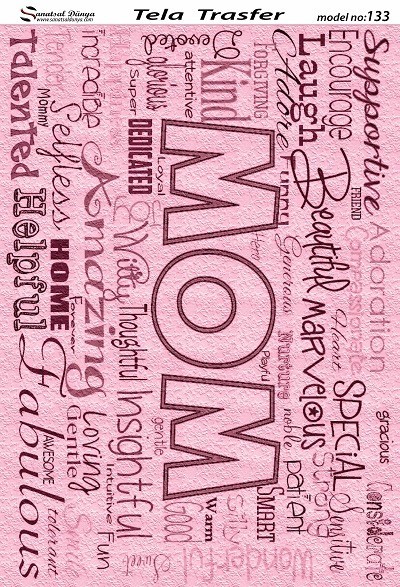 Sanatsal Dünya
www.sanatsaldunya.com
Tela Trasfer
model no:133
Supportive
Adoration
gracious
Considerate
Encourage
FRIEND
Compassionate
Heart
SPECiAL
Sensitive
Laugh
Beautiful
MARVELOUS
Strong
FORGIVING
Adore
Funny
Generous
Nurture
noble
patient
Kind
Hero
Playful
SMART
Wonderful
attentive
MOM
Devoted
glorious
Loyal
gentle
Silly
Wam
GOOD
Super
DEDICATED
Witty
Thoughtful
Insightful
Sweet
Incredible
Amazing
Loving
Intuitive
Fun
Mommy
Selfless
HOME
Forever
Gentle
Smile
Talented
Helpful
Fabulous
AWESOME
tolerant